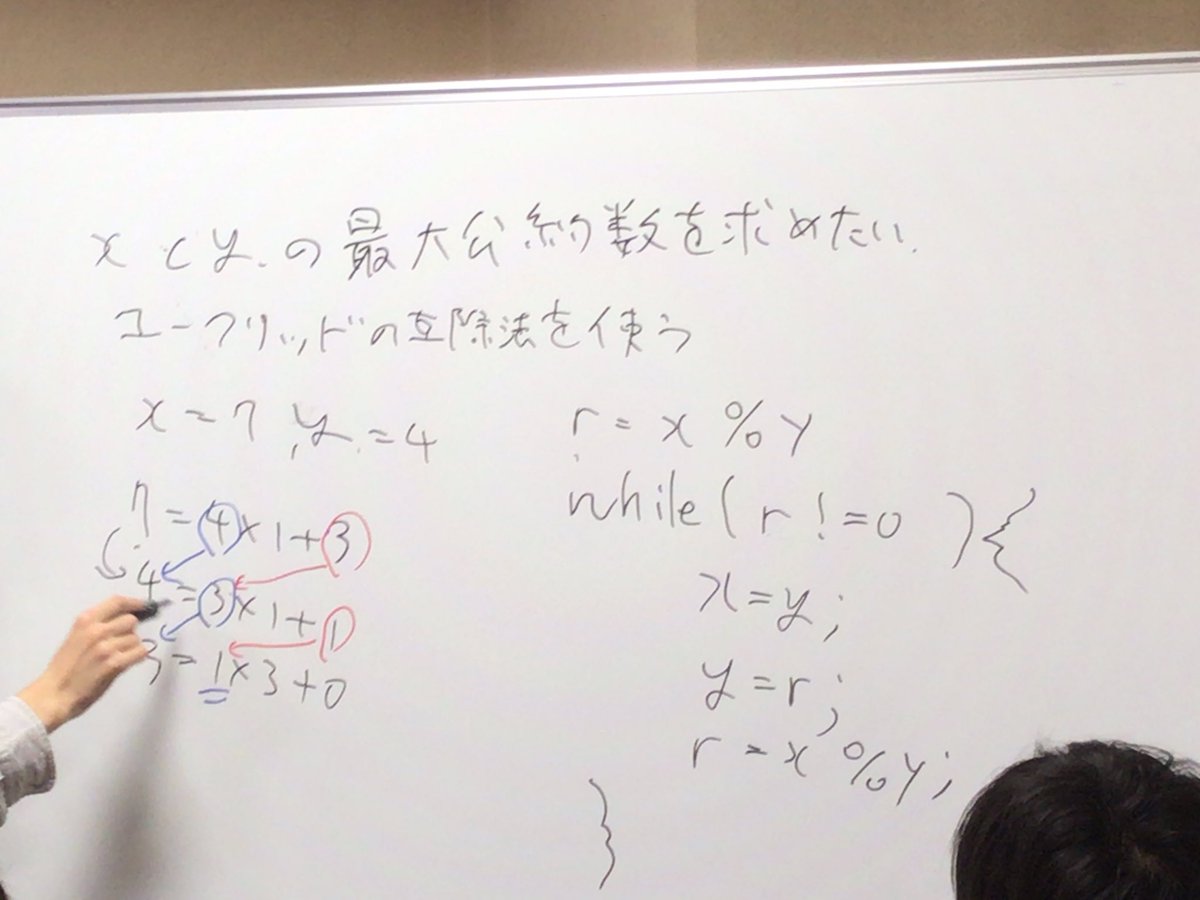 xとyの最大公約数を求めたい.
ユークリッドの互除法を使う
x=7, y=4
7=4×1+3
4=3×1+1
3=1×3+0
r=x%y
while(r!=0){
x=y;
y=r;
r=x%y;
}